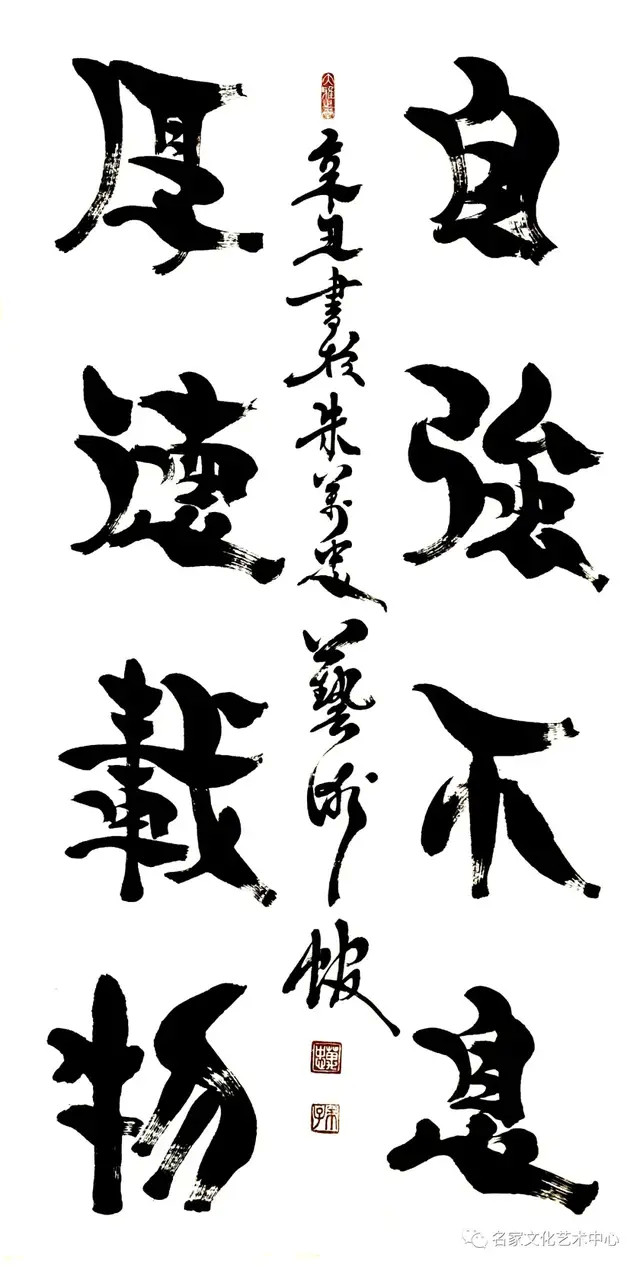 自強不息
厚德載物
辛丑書於朱萬忠藝術館
萬忠
名家文化艺术中心